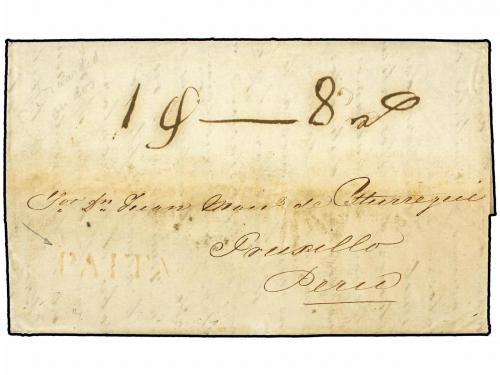 1 — 8
Sor. Dn. Juan Manl. de Yturregui
Truxillo
Perú
PAITA